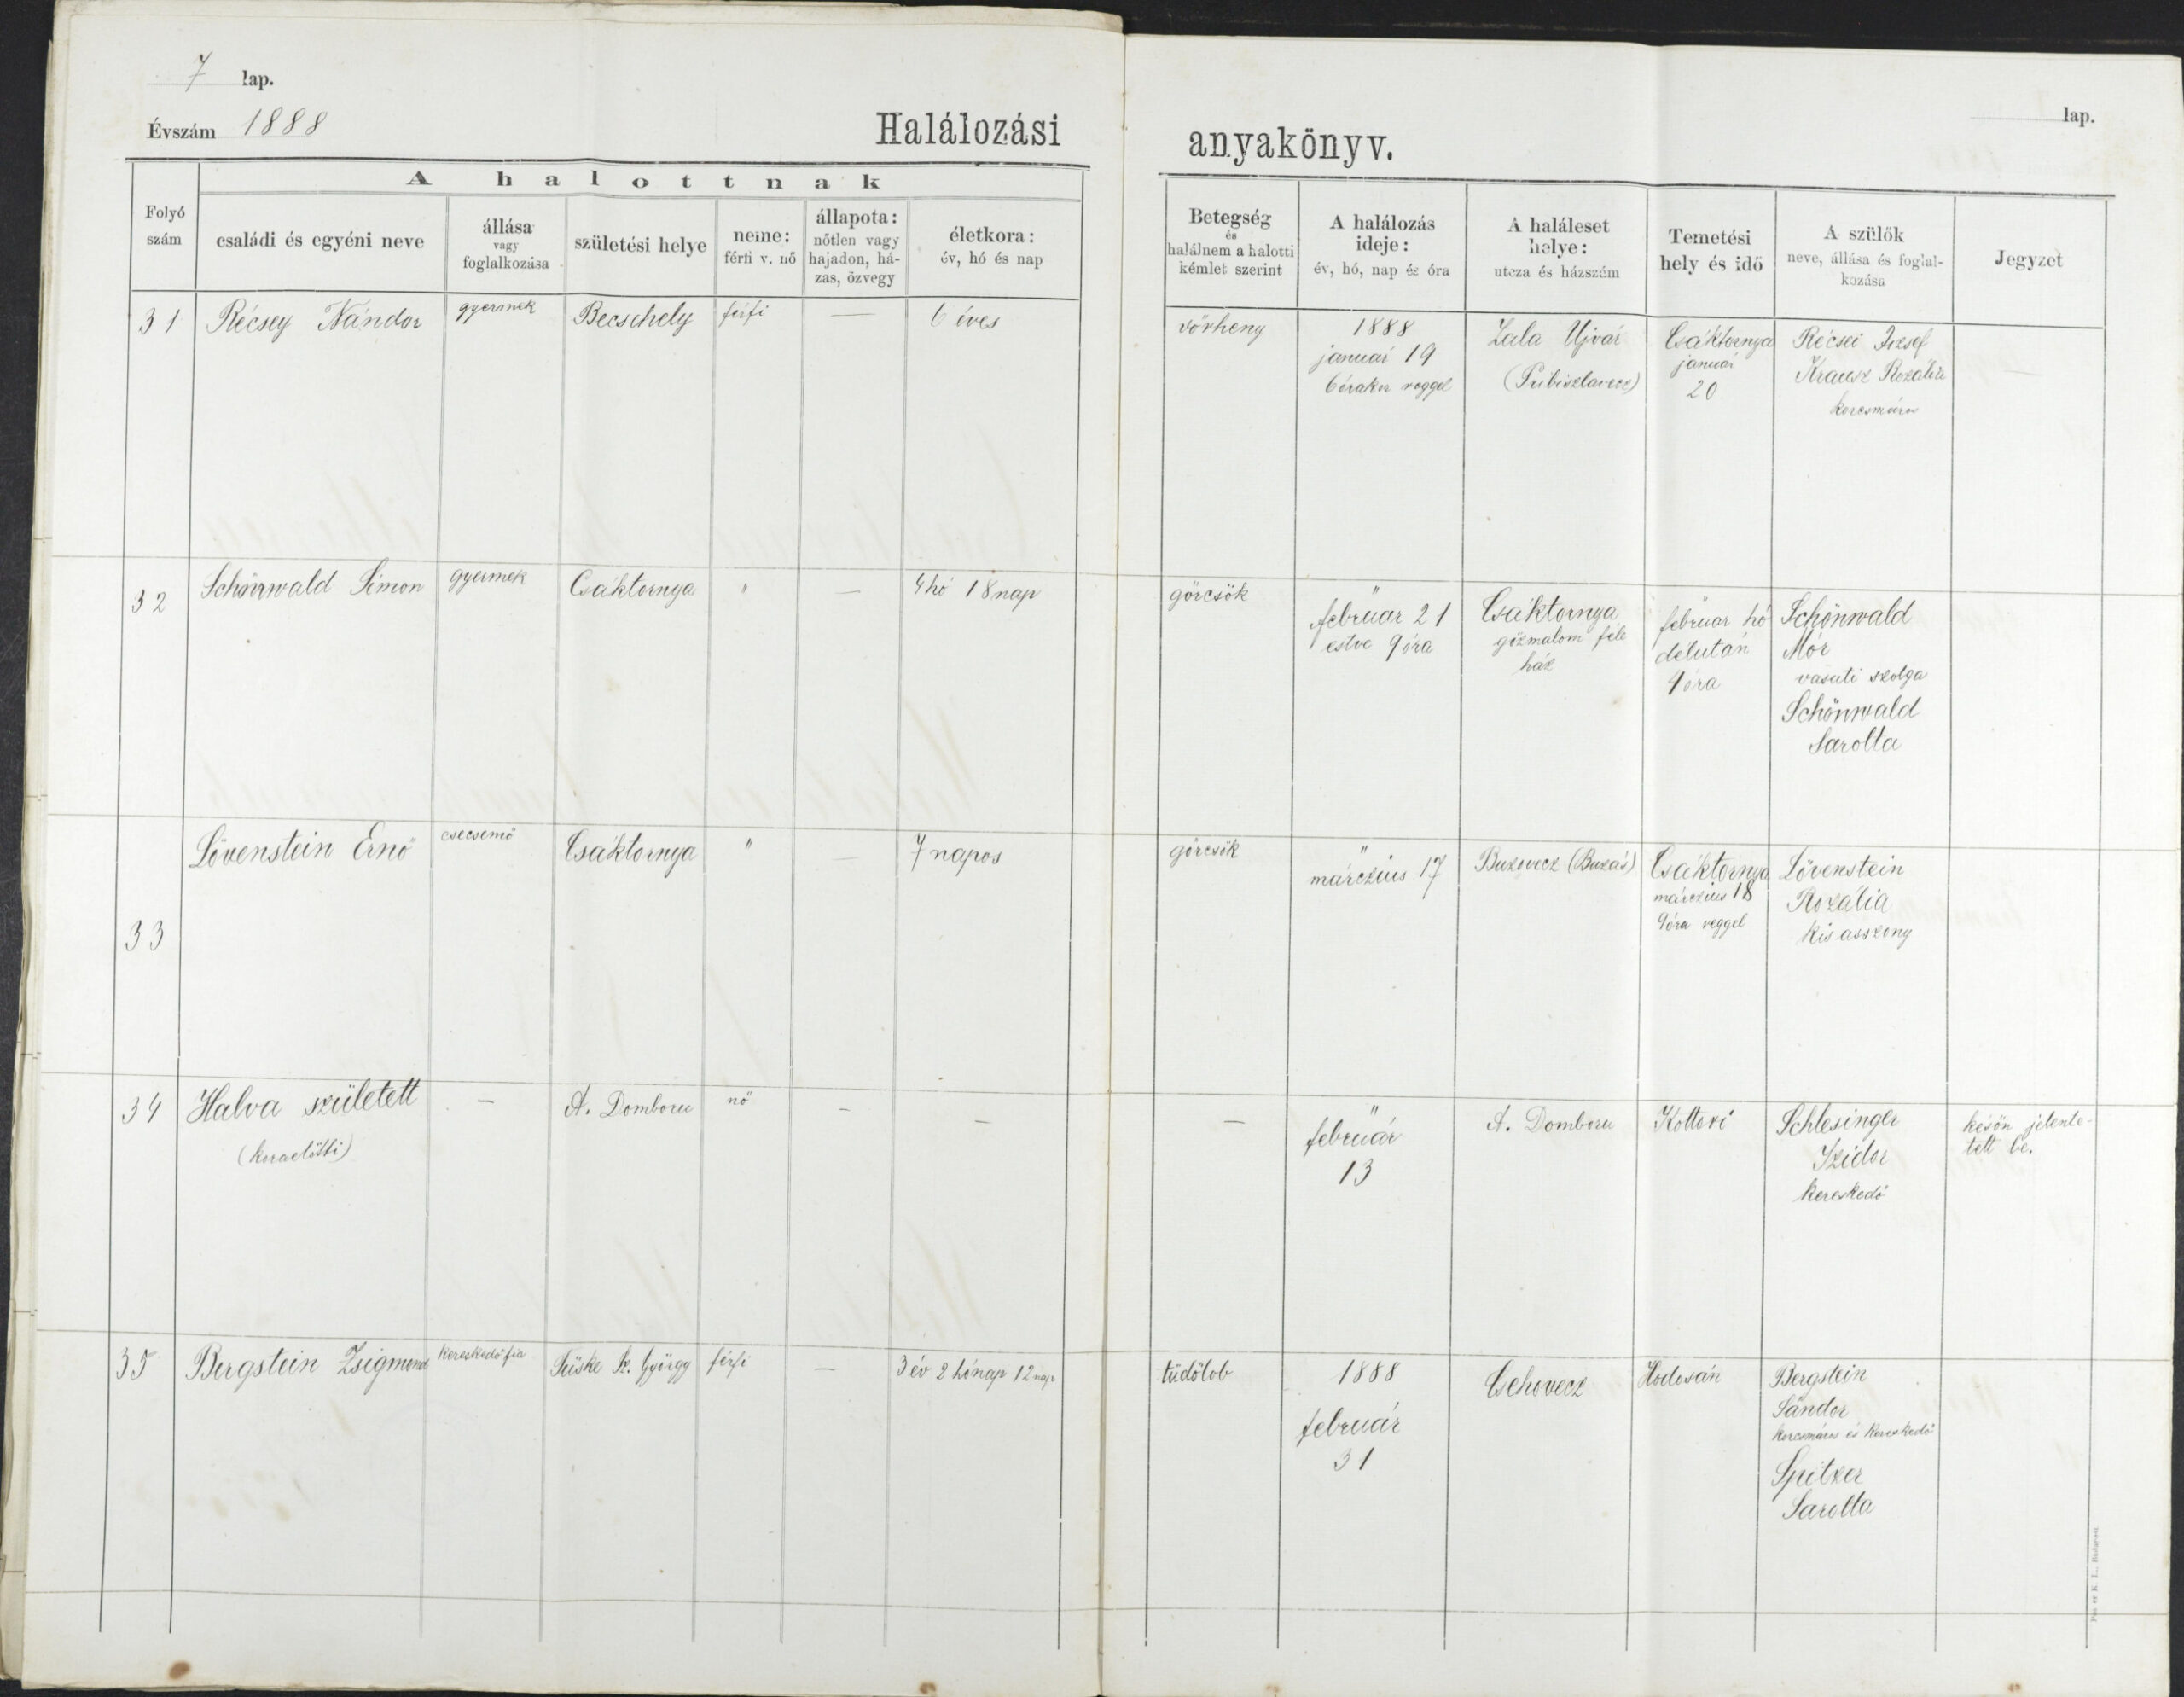 7 lap.
Évszám 1888
Halálozási anyakönyv.
lap.
A halottnak
Folyó szám
családi és egyéni neve
állása vagy foglalkozása
születési helye
neme: férfi v. nő
állapota: nőtlen vagy hajadon, házas, özvegy
életkora: év, hó és nap
Betegség és halálnem a halotti kémlet szerint
A halálozás ideje: év, hó, nap és óra
A haláleset helye: utcza és házszám
Temetési hely és idő
A szülők neve, állása és foglalkozása
Jegyzet
31
Récsey Nándor
gyermek
Becsehely
férfi
—
6 éves
vörheny
1888
január 19
6 órakor reggel
Zala Ujvár
(Pribiszlavecz)
Csáktornya
január
20
Récsei József
Krausz Rozália
korcsmáros
—
32
Schönwald Simon
gyermek
Csáktornya
"
—
4 hó 18 nap
görcsök
"
február 21
estve 9 óra
Csáktornya
gőzmalom féle
ház
február hó
délután
4 óra
Schönwald
Mór
vasuti szolga
Schönwald
Sarolta
33
Lövenstein Ernő
csecsemő
Csáktornya
"
—
7 napos
görcsök
"
márczius 17
Buzovecz (Buzás)
Csáktornya
márczius 18
9 óra reggel
Lövenstein
Rozália
kis asszony
34
Halva született
(koraelőtti)
—
A. Domboru
nő
—
—
—
"
február
13
A. Domboru
Kottori
Schlesinger
Izidor
kereskedő
későn jelente-
tett be.
35
Bergstein Zsigmond
kereskedő fia
Tüske Sz. György
férfi
—
3 év 2 hónap 12 nap
tüdőlob
1888
február
31
Csehovecz
Hodosán
Bergstein
Sándor
korcsmáros és kereskedő
Spitzer
Sarolta